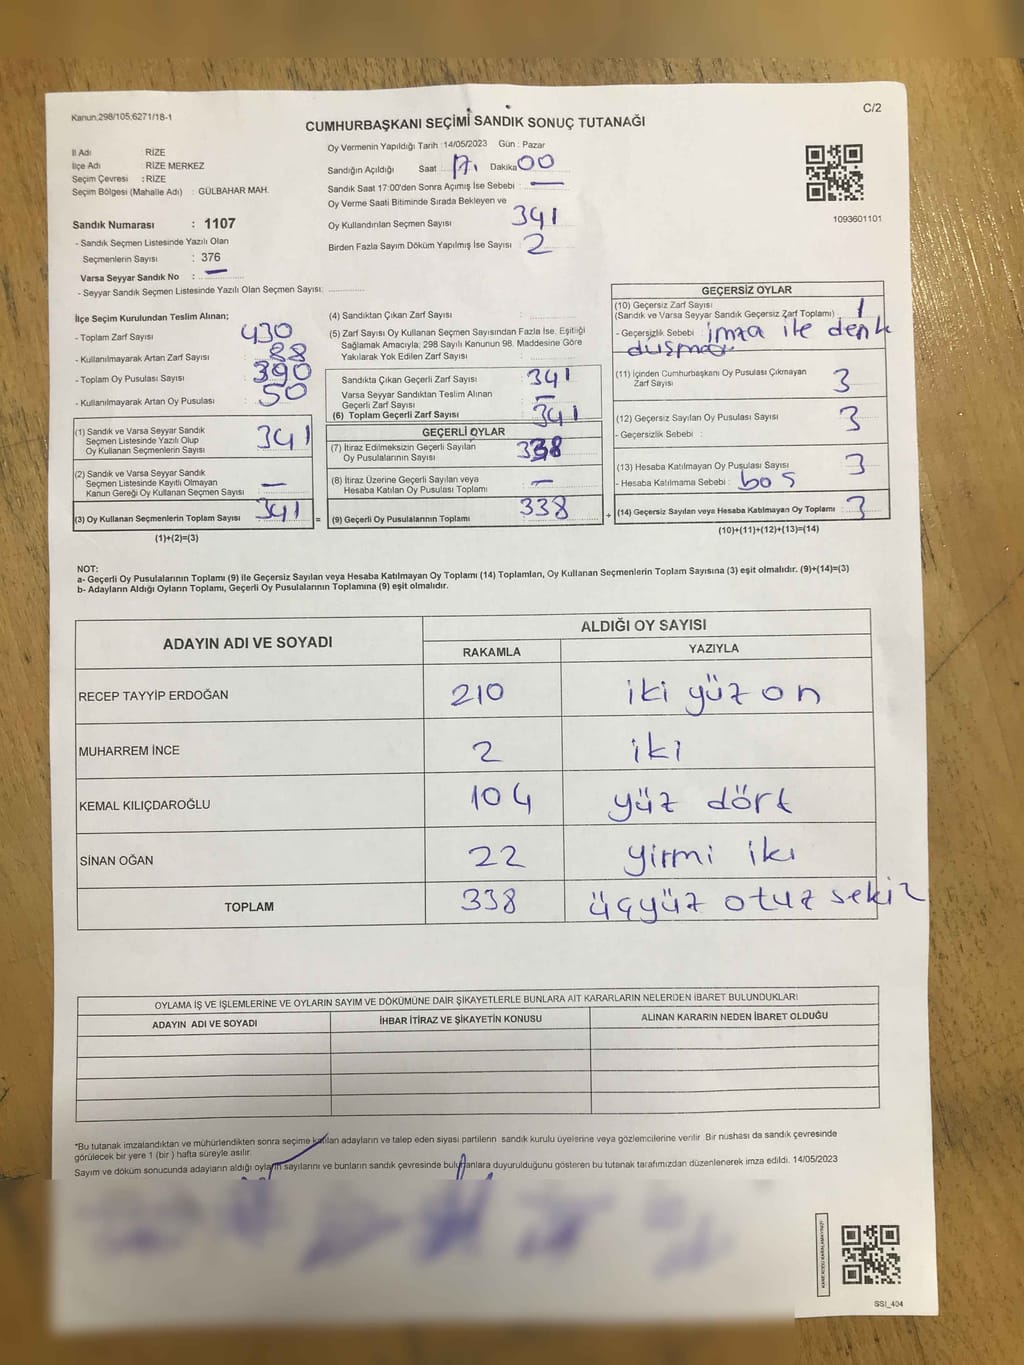 Kanun;298/105;6271/18-1
C/2
CUMHURBAŞKANI SEÇİMİ SANDIK SONUÇ TUTANAĞI
İl Adı RİZE
İlçe Adı : RİZE MERKEZ
Seçim Çevresi : RİZE
Seçim Bölgesi (Mahalle Adı) : GÜLBAHAR MAH.
Sandık Numarası : 1107
- Sandık Seçmen Listesinde Yazılı Olan
Seçmenlerin Sayısı : 376
Varsa Seyyar Sandık No : —
- Seyyar Sandık Seçmen Listesinde Yazılı Olan Seçmen Sayısı:
Oy Vermenin Yapıldığı Tarih :14/05/2023 Gün : Pazar
Sandığın Açıldığı Saat : 17. Dakika 00
Sandık Saat 17:00'den Sonra Açımış İse Sebebi : —
Oy Verme Saati Bitiminde Sırada Bekleyen ve
Oy Kullandırılan Seçmen Sayısı 341
Birden Fazla Sayım Döküm Yapılmış İse Sayısı : 2
1093601101
İlçe Seçim Kurulundan Teslim Alınan;
- Toplam Zarf Sayısı 430
- Kullanılmayarak Artan Zarf Sayısı : 88
- Toplam Oy Pusulası Sayısı : 390
- Kullanılmayarak Artan Oy Pusulası : 50
(1) Sandık ve Varsa Seyyar Sandık
Seçmen Listesinde Yazılı Olup
Oy Kullanan Seçmenlerin Sayısı 341
(2) Sandık ve Varsa Seyyar Sandık
Seçmen Listesinde Kayıtlı Olmayan
Kanun Gereği Oy Kullanan Seçmen Sayısı —
(3) Oy Kullanan Seçmenlerin Toplam Sayısı 341
(1)+(2)=(3)
=
(4) Sandıktan Çıkan Zarf Sayısı :
(5) Zarf Sayısı Oy Kullanan Seçmen Sayısından Fazla İse, Eşitliği
Sağlamak Amacıyla; 298 Sayılı Kanunun 98. Maddesine Göre
Yakılarak Yok Edilen Zarf Sayısı :
Sandıkta Çıkan Geçerli Zarf Sayısı : 341
Varsa Seyyar Sandıktan Teslim Alınan
Geçerli Zarf Sayısı : —
(6) Toplam Geçerli Zarf Sayısı : 341
GEÇERLİ OYLAR
(7) İtiraz Edilmeksizin Geçerli Sayılan
Oy Pusulalarının Sayısı : 338
(8) İtiraz Üzerine Geçerli Sayılan veya
Hesaba Katılan Oy Pusulası Toplamı : —
(9) Geçerli Oy Pusulalarının Toplamı : 338
+
GEÇERSİZ OYLAR
(10) Geçersiz Zarf Sayısı
(Sandık ve Varsa Seyyar Sandık Geçersiz Zarf Toplamı) : 1
- Geçersizlik Sebebi : imza ile denk
(11) İçinden Cumhurbaşkanı Oy Pusulası Çıkmayan
Zarf Sayısı : 3
(12) Geçersiz Sayılan Oy Pusulası Sayısı : 3
- Geçersizlik Sebebi :
(13) Hesaba Katılmayan Oy Pusulası Sayısı : 3
- Hesaba Katılmama Sebebi : boş
(14) Geçersiz Sayılan veya Hesaba Katılmayan Oy Toplamı : 3
(10)+(11)+(12)+(13)=(14)
NOT:
a- Geçerli Oy Pusulalarının Toplamı (9) ile Geçersiz Sayılan veya Hesaba Katılmayan Oy Toplamı (14) Toplamları, Oy Kullanan Seçmenlerin Toplam Sayısına (3) eşit olmalıdır. (9)+(14)=(3)
b- Adayların Aldığı Oyların Toplamı, Geçerli Oy Pusulalarının Toplamına (9) eşit olmalıdır.
ADAYIN ADI VE SOYADI
ALDIĞI OY SAYISI
RAKAMLA YAZIYLA
RECEP TAYYİP ERDOĞAN 210 iki yüz on
MUHARREM İNCE 2 iki
KEMAL KILIÇDAROĞLU 104 yüz dört
SİNAN OĞAN 22 yirmi iki
TOPLAM 338 üçyüz otuz sekiz
OYLAMA İŞ VE İŞLEMLERİNE VE OYLARIN SAYIM VE DÖKÜMÜNE DAİR ŞİKAYETLERLE BUNLARA AİT KARARLARIN NELERDEN İBARET BULUNDUKLARI
ADAYIN ADI VE SOYADI İHBAR İTİRAZ VE ŞİKAYETİN KONUSU ALINAN KARARIN NEDEN İBARET OLDUĞU
*Bu tutanak imzalandıktan ve mühürlendikten sonra seçime katılan adayların ve talep eden siyasi partilerin sandık kurulu üyelerine veya gözlemcilerine verilir. Bir nüshası da sandık çevresinde
görülecek bir yere 1 (bir) hafta süreyle asılır.
Sayım ve döküm sonucunda adayların aldığı oyların sayılarını ve bunların sandık çevresinde bulunanlara duyurulduğunu gösteren bu tutanak tarafımızdan düzenlenerek imza edildi. 14/05/2023
SSI_404